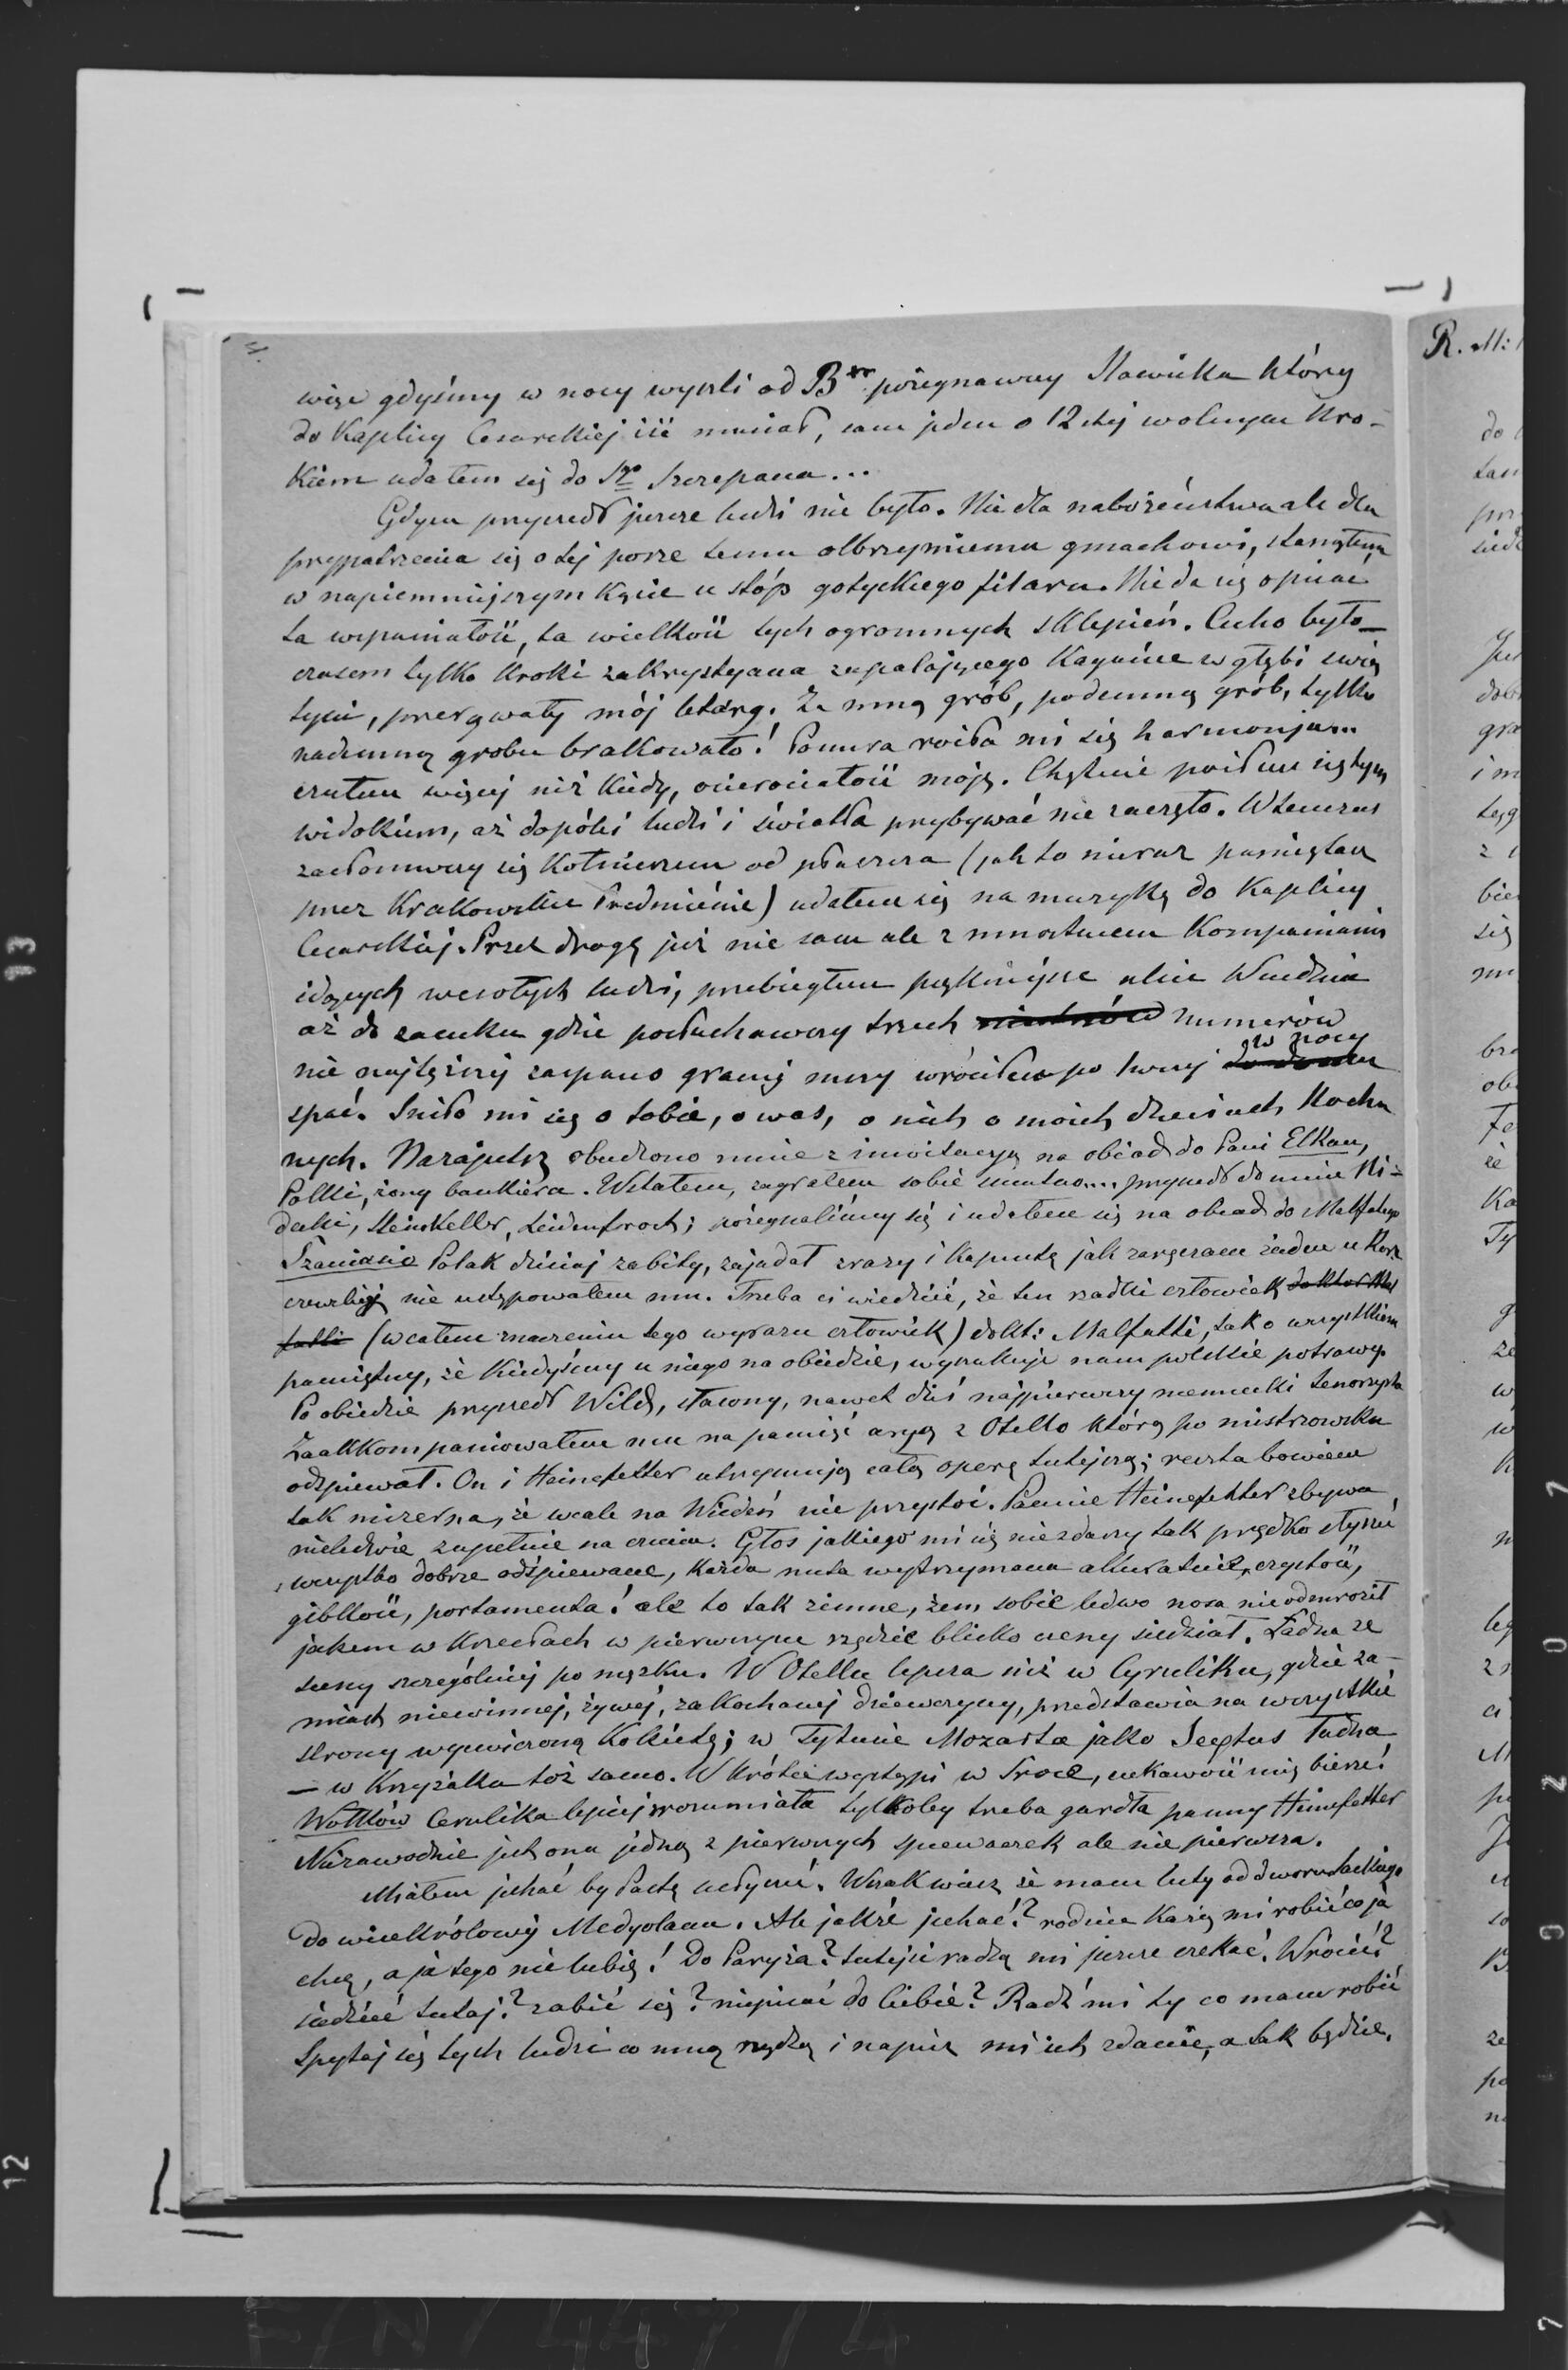 więc gdyśmy w nocy wyszli od B<sup>wr</sup> pożegnawszy Slawika który
do Kaplicy Cesarskiej iść musiał, sam jeden o 12stej wolnym Kro-
Kiem udałem się do Sgo Szczepana...
Gdym przyszedł jeszcze ludzi nie było. Nie dla nabożeństwa ale dla
przypatrzenia się o tej porze temu olbrzymiemu gmachowi, stanąłem
w najciemniejszym Kącie u stóp gotyckiego filaru. Nie da się opisać
ta wspaniałość, ta wielkość tych ogromnych sklepień. Cicho było_
czasem tylko Kroki zakrystyana zapalającego Kagańce w głębi świą
tyni, przerywały mój letarg. Za mną grób, podemną grób, tylko
nademną grobu brakowało! Ponura roiła mi się harmonja...
czułem więcej niż kiedy, osierociałość moję. Chętnie poiłem się tym
widokiem, aż dopóki ludzi i światła przybywać nie zaczęło. Wtenczas
zasłoniwszy się Kołnierzem od płaszcza (jak to nieraz pamiętasz
przez Krakowskie Przedmieście) udałem się na muzykę do Kaplicy
Cesarskiej. Przez drogę już nie sam ale z mnóstwem Kompaniami
idących wesołych ludzi, przebiegłem piękniejsze ulice Wiednia
aż do zamku gdzie posłuchawszy trzech numerów
nie najtężej zaspano granej mszy wróciłem po 1wszej w nocy
spać. Śniło mi się o tobie, o was, o nich o moich dzieciach Kocha
nych. Nazajutrz obudzono mnie z inwitacyą na obiad do Pani Elkan,
Polki, żony bankiera. Wstałem, zagrałem sobie smutno... przyszedł do mnie Ni-
decki, Steinkeller, Leidenfrost; pożegnaliśmy się i udałem się na obiad do Malfatego
Szaniasio Polak dzisiaj zabity, zajadał zrazy i kapustę jak zarzezany żaden u Korz
czewskiej nie ustępowałem mu. Trzeba ci wiedzieć, że ten rzadki człowiek doktor Mal
fatti (w całem znaczeniu tego wyrazu człowiek) dokt: Malfatti, tak o wszystkiem
pamiętny, że kiedyśmy u niego na obiedzie, wyszukuje nam polskie potrawy.
Po obiedzie przyszedł Wild, sławny, nawet dziś najpierwszy niemiecki tenorzysta
Zaakkompaniowałem mu na pamięć aryę z Otello którą po mistrzowsku
odśpiewał. On i Heinefetter utrzymują całą operę tutejszą; reszta bowiem
tak mizerna, że wcale na Wiedeń nie przystoi. Pannie Heinefetter zbywa
nieledwie zupełnie na czuciu. Głos jakiego mi się nie zdarzy tak prędko słyszeć
, wszystko dobrze odśpiewane, każda nuta wytrzymana akuratnie, czystość,
gibkość, portamenta! ale to tak zimne, żem sobie ledwo nosa nie odmroził
jakem w Krzesłach w pierwszym rzędzie blisko sceny siedział. Ładna ze
sceny szczególniej po męzku. W Otellu lepsza niż w Cyruliku, gdzie za-
miast niewinnej, żywej, zakochanej dziewczyny, przedstawia na wszystkie
strony wyćwiczoną Kokietę; w Tytusie Mozarta jako Sextus ładna
— w Krzyżaku toż samo. Wkrótce wystąpi w Sroce, ciekawość mię bierze!
Wołków Cerulika lepiej rozumiała tylkoby trzeba gardła panny Heinefetter
Niezawodnie jest ona jedną z pierwszych śpiewaczek ale nie pierwsza.
Miałem jechać by Pastę usłyszeć. Wszak wiesz że mam listy od dworu saskiego
do wicekrólowej Medyolanu. Ale jakże jechać? rodzice każą mi robić co ja
chcę, a ja tego nie lubię! Do Paryża? tutejsi radzą mi jeszcze czekać. Wrócić?
siedzieć tutaj? zabić się? niepisać do Ciebie? Radź mi ty co mam robić
Spytaj się tych ludzi co mną rządzą i napisz mi ich zdanie, a tak będzie.